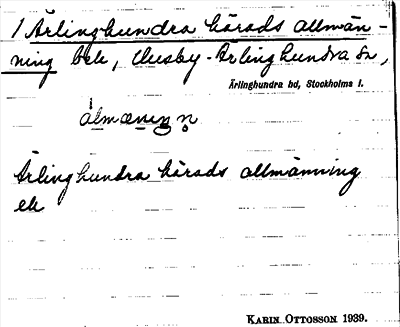 1 Ärlinghundra härads allmän-
ning bel, Husby-Ärlinghundra sn,
Ärlinghundra hd, Stockholms l.
Ärlinghundra härads allmänning
ek
KARIN OTTOSSON 1939.